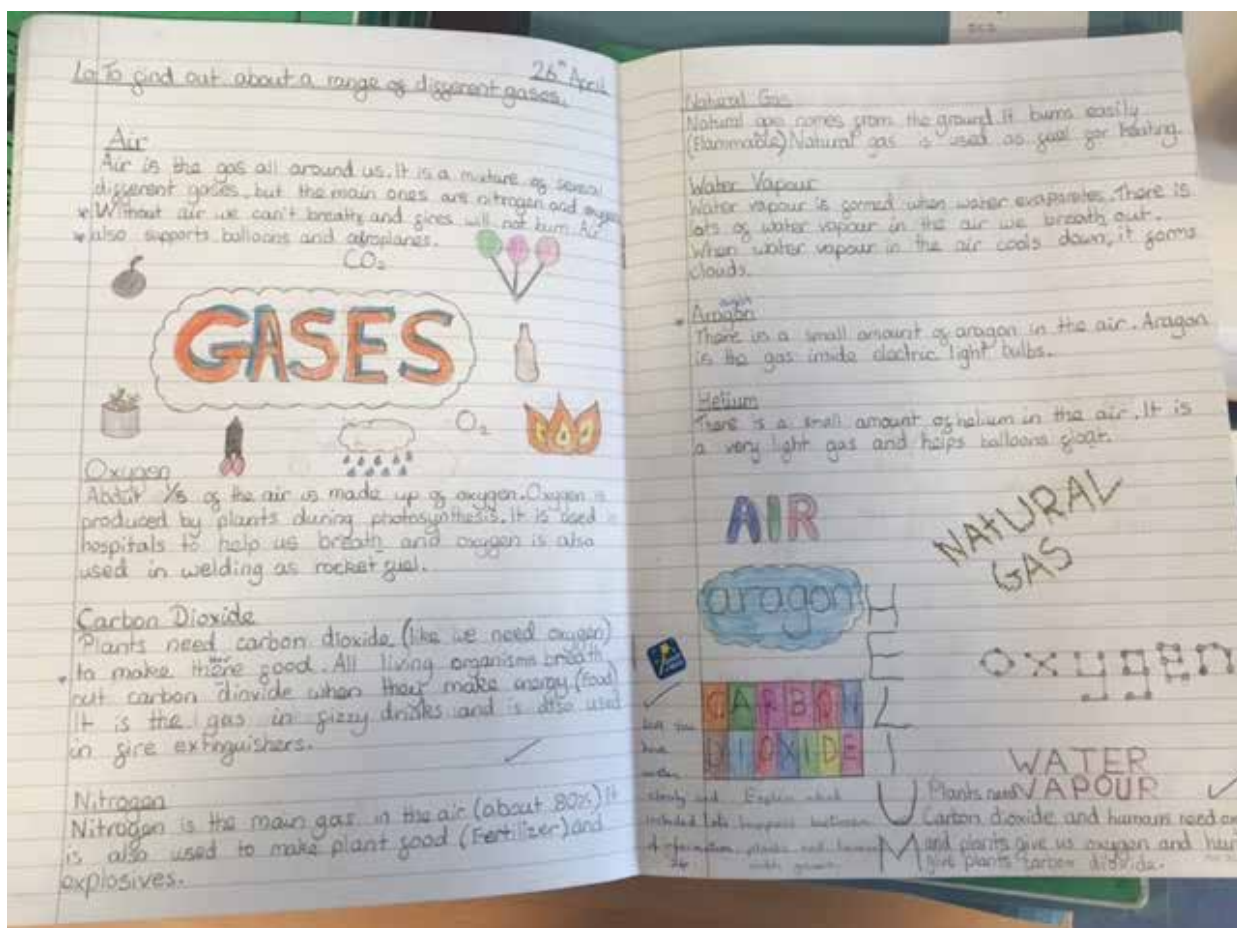 Lo To find out about a range of different gases.
26th April
Air
Air is the gas all around us. It is a mixture of several
different gases, but the main ones are nitrogen and oxygen
* Without air we can't breath and fires will not burn. Air
* also supports balloons and aeroplanes.
CO2
GASES
O2
Oxygen
About 1/5 of the air is made up of oxygen. Oxygen is
produced by plants during photosynthesis. It is used
hospitals to help us breath and oxygen is also
used in welding as rocket fuel.
Carbon Dioxide
Plants need carbon dioxide (like we need oxygen)
* to make there food. All living organisms breath
out carbon dioxide when they make energy (Food)
It is the gas in fizzy drinks and is also used
in fire extinguishers.
Nitrogen
Nitrogen is the main gas in the air (about 80%) it
is also used to make plant food (Fertilizer) and
explosives.
Natural Gas
Natural gas comes from the ground. It burns easily
(Flammable) Natural gas is used as fuel for heating.
Water Vapour
Water vapour is formed when water evaporates. There is
lots of water vapour in the air we breath out.
When water vapour in the air cools down, it forms
clouds.
* Aragon
There is a small amount of aragon in the air. Aragon
is the gas inside electric light bulbs.
Helium
There is a small amount of helium in the air. It is
a very light gas and helps balloons float.
AIR
NAtURAL
GAS
aragon
HELIUM
oxygen
CARBON
DIOXIDE
WATER
VAPOUR
Explain what
included lots happens between
of information plants and humans
Plants need
Carbon dioxide and humans need
and plants give us oxygen and
give plants carbon dioxide.